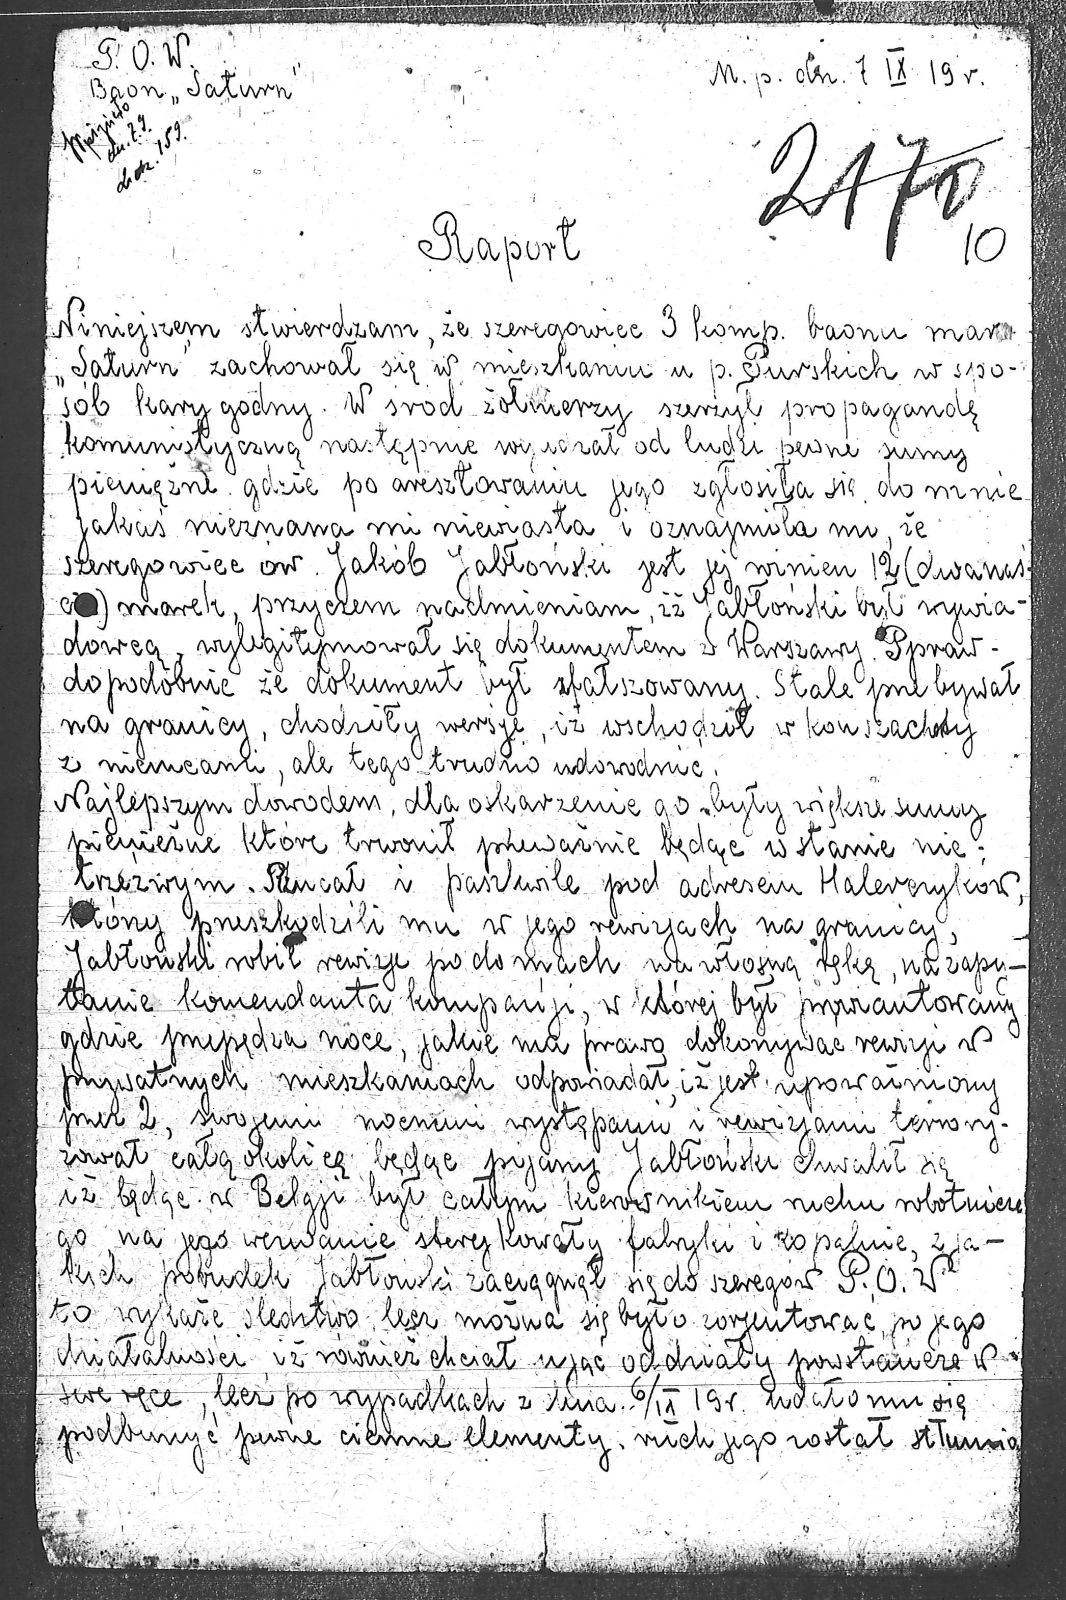 P. O. W.
Baon „Saturn"
M. p. dn. 7 IX 19 r.
Wpłynęło
dn. 7.9.
L. dz. 159.
2170
10
Raport
Niniejszem stwierdzam, że szeregowiec 3 komp. baonu mar.
„Saturn" zachował się w mieszkaniu u p. Purskich w spo-
sób kary godny. W śród żołnierzy szerzył propagandę
komunistyczną następnie wyłudzał od ludzi pewne sumy
pieniężne gdzie po aresztowaniu jego zgłosiła się do mnie
jakaś nieznana mi niewiasta i oznajmiła mi, że
szeregowiec ów Jakób Jabłoński jest jej winien 12 (dwanaś-
cie) marek, przyczem nadmieniam, iż Jabłoński był wywia-
dowcą, wylegitymował się dokumentem z Warszawy. Ppraw-
dopodobnie że dokument był sfałszowany. Stale przebywał
na granicy, chodziły wersje, iż wschodził w konszachty
z niemcami, ale tego trudno udowodnić.
Najlepszym dowodem, dla oskarżenie go były większe sumy
pieniężne które trwonił przeważnie będąc w stanie nie-
trzeźwym. Rzucał i paszkwile pod adresem Halerczyków,
którzy przeszkodzili mu w jego rewizjach na granicy,
Jabłoński robił rewizje po domach na własną rękę, na zapy-
tanie komendanta kompanji, w której był prowiantowany
gdzie przepędza noce, jakie ma prawo dokonywać rewizji w
prywatnych mieszkaniach odpowiadał, iż jest upoważniony
przez 2, swojemi nocnemi występami i rewizjami terrory-
zował całą okolicę będąc pijany Jabłoński chwalił się
iż będąc w Belgji był całym kierownikiem ruchu robotnicze
go, na jego wezwanie sterejkowały fabryki i kopalnie, z ja-
kich pobudek Jabłoński zaciągnął się do szeregów P. O. W.
to wykaże śledztwo, lecz można się było zorjentować, po jego
działalności iż również chciał ująć oddziały powstańcze w
swe ręce, lecz po wypadkach z dnia 6/IX 19 r. udało mu się
podburzyć pewne ciemne elementy. ruch jego został stłumio